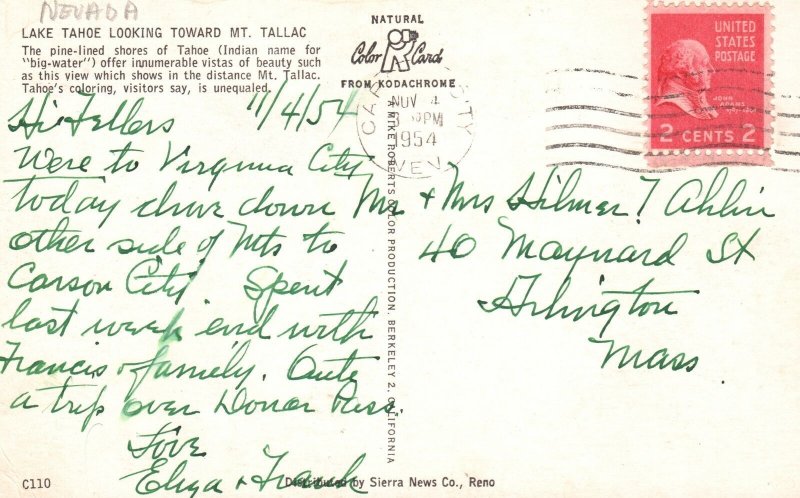 NEVADA
LAKE TAHOE LOOKING TOWARD MT. TALLAC
The pine-lined shores of Tahoe (Indian name for
"big-water") offer innumerable vistas of beauty such
as this view which shows in the distance Mt. Tallac.
Tahoe's coloring, visitors say, is unequaled.
NATURAL
Color Card
FROM KODACHROME
NOV 4
PM
1954
NEV.
UNITED
STATES
POSTAGE
JOHN
ADAMS
1797-1801
2 CENTS 2
11/4/54
Hi Fellers
Were to Virginia City
today drive down
other side of Mts to
Carson City Spent
last week end with
Francis & family. Quite
a trip over Donner Pass.
Love
Elsya & Frank
Mr & Mrs Hilmer T Ahlin
40 Maynard St
Arlington
Mass
A MIKE ROBERTS COLOR PRODUCTION. BERKELEY 2, CALIFORNIA
C110
Distributed by Sierra News Co., Reno